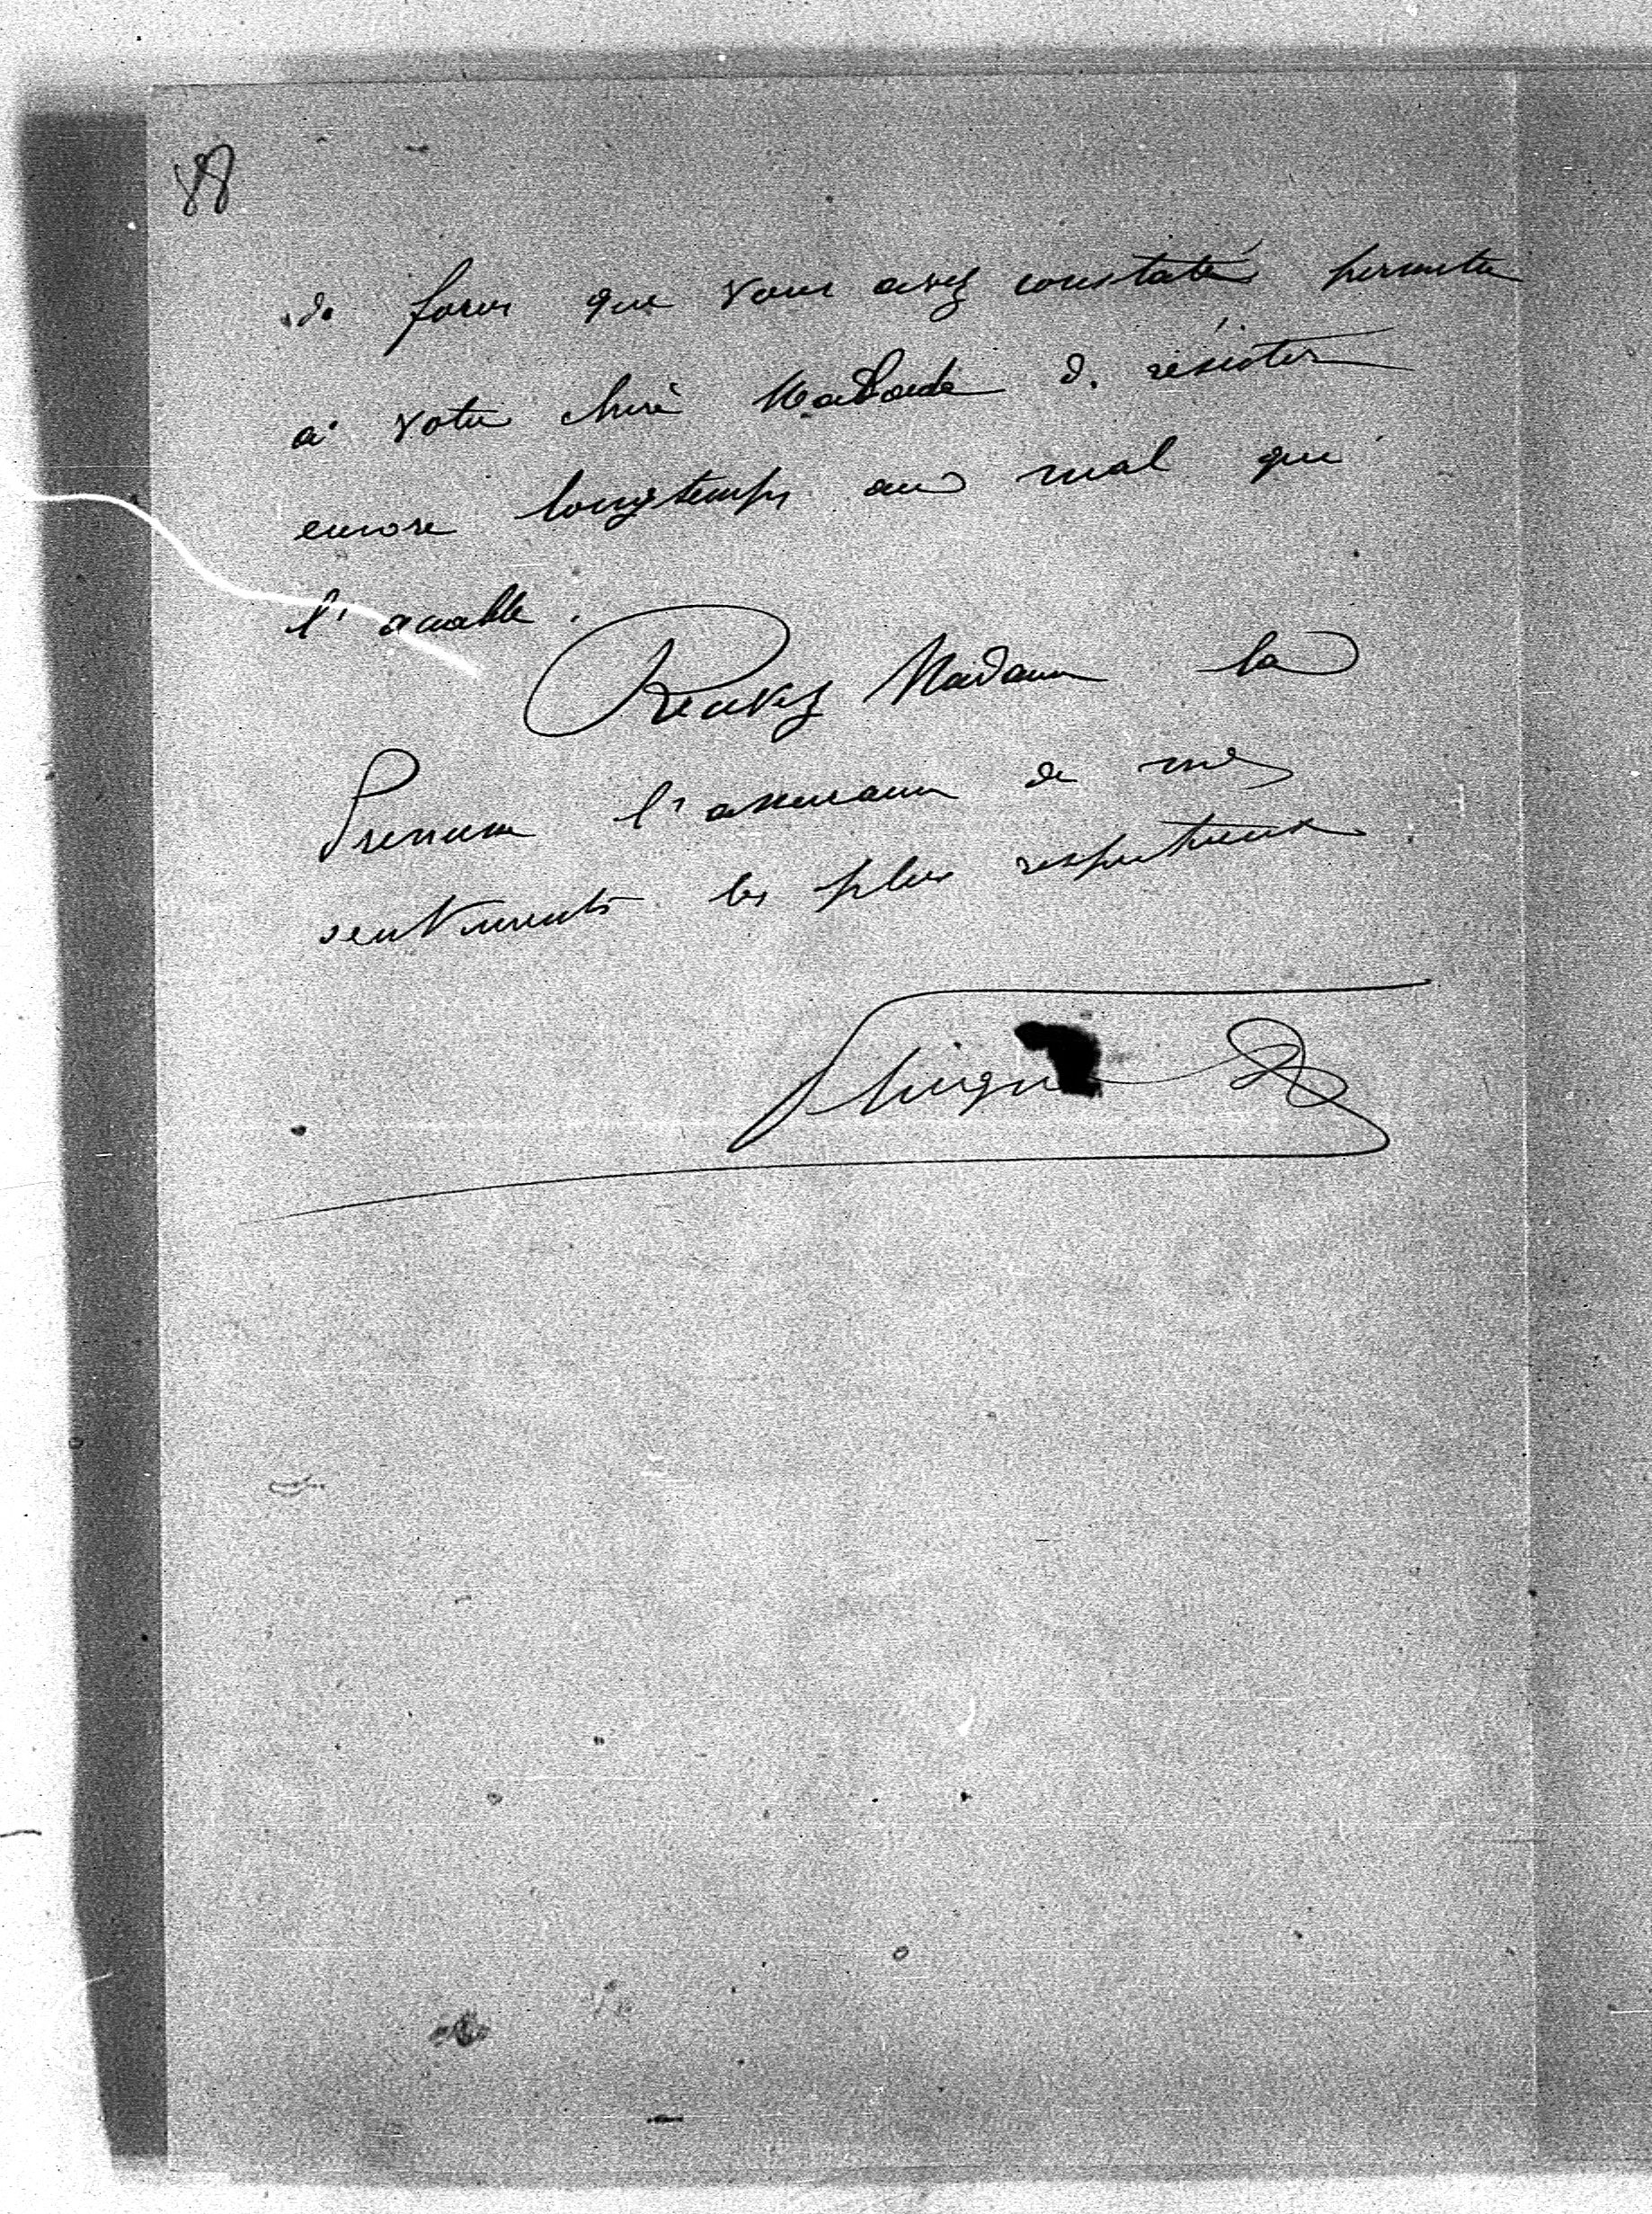 88
de forces que vous avez constaté permette
à votre chère Malade de résister
encore longtemps au mal qui
l'accable.
Recevez Madame la
Princesse l'assurance de mes
sentiments les plus respectueux